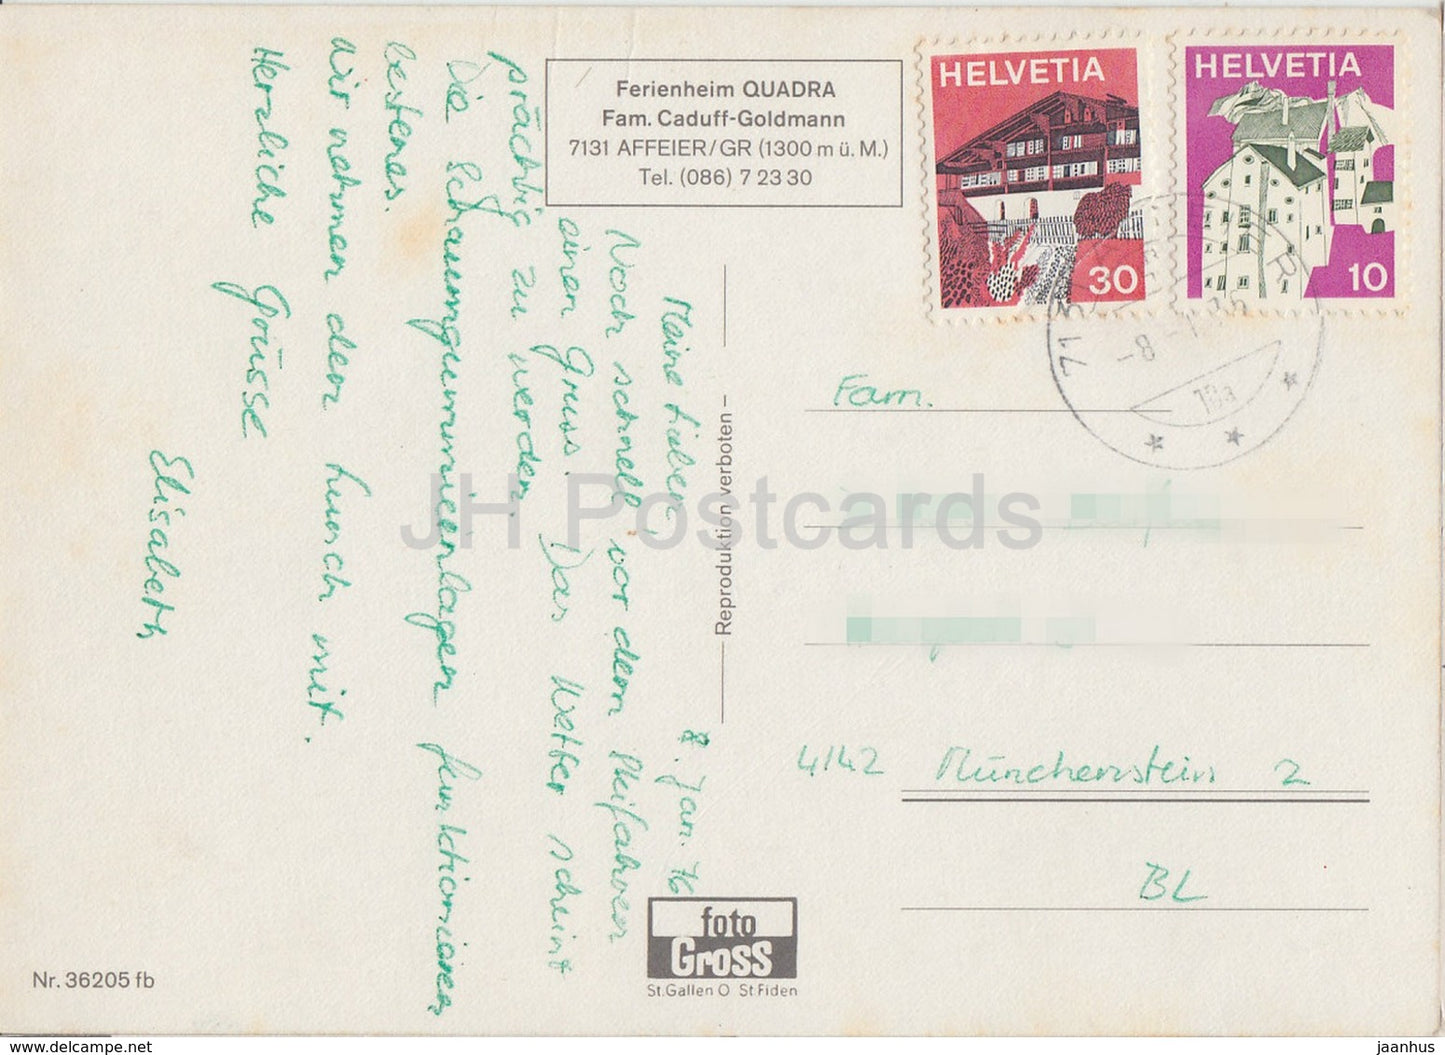 Ferienheim QUADRA
Fam. Caduff-Goldmann
7131 AFFEIER/GR (1300 m ü. M.)
Tel. (086) 7 23 30
HELVETIA
30
HELVETIA
10
7131
-8-1.76
10a
8. Jan. 76
Meine Lieben,
Noch schnell vor dem
einen Gruss. Das Wetter scheint
prächtig zu werden.
Die Schaumgummieinlagen funktionieren
bestens.
Wir nehmen den Lunch mit.
Herzliche Grüsse
Elisabeth
Reproduktion verboten –
Fam.
4142 Münchenstein 2
BL
foto
Gross
St.Gallen O St Fiden
Nr. 36205 fb
JH Postcards
www.delcampe.net
jaanhus